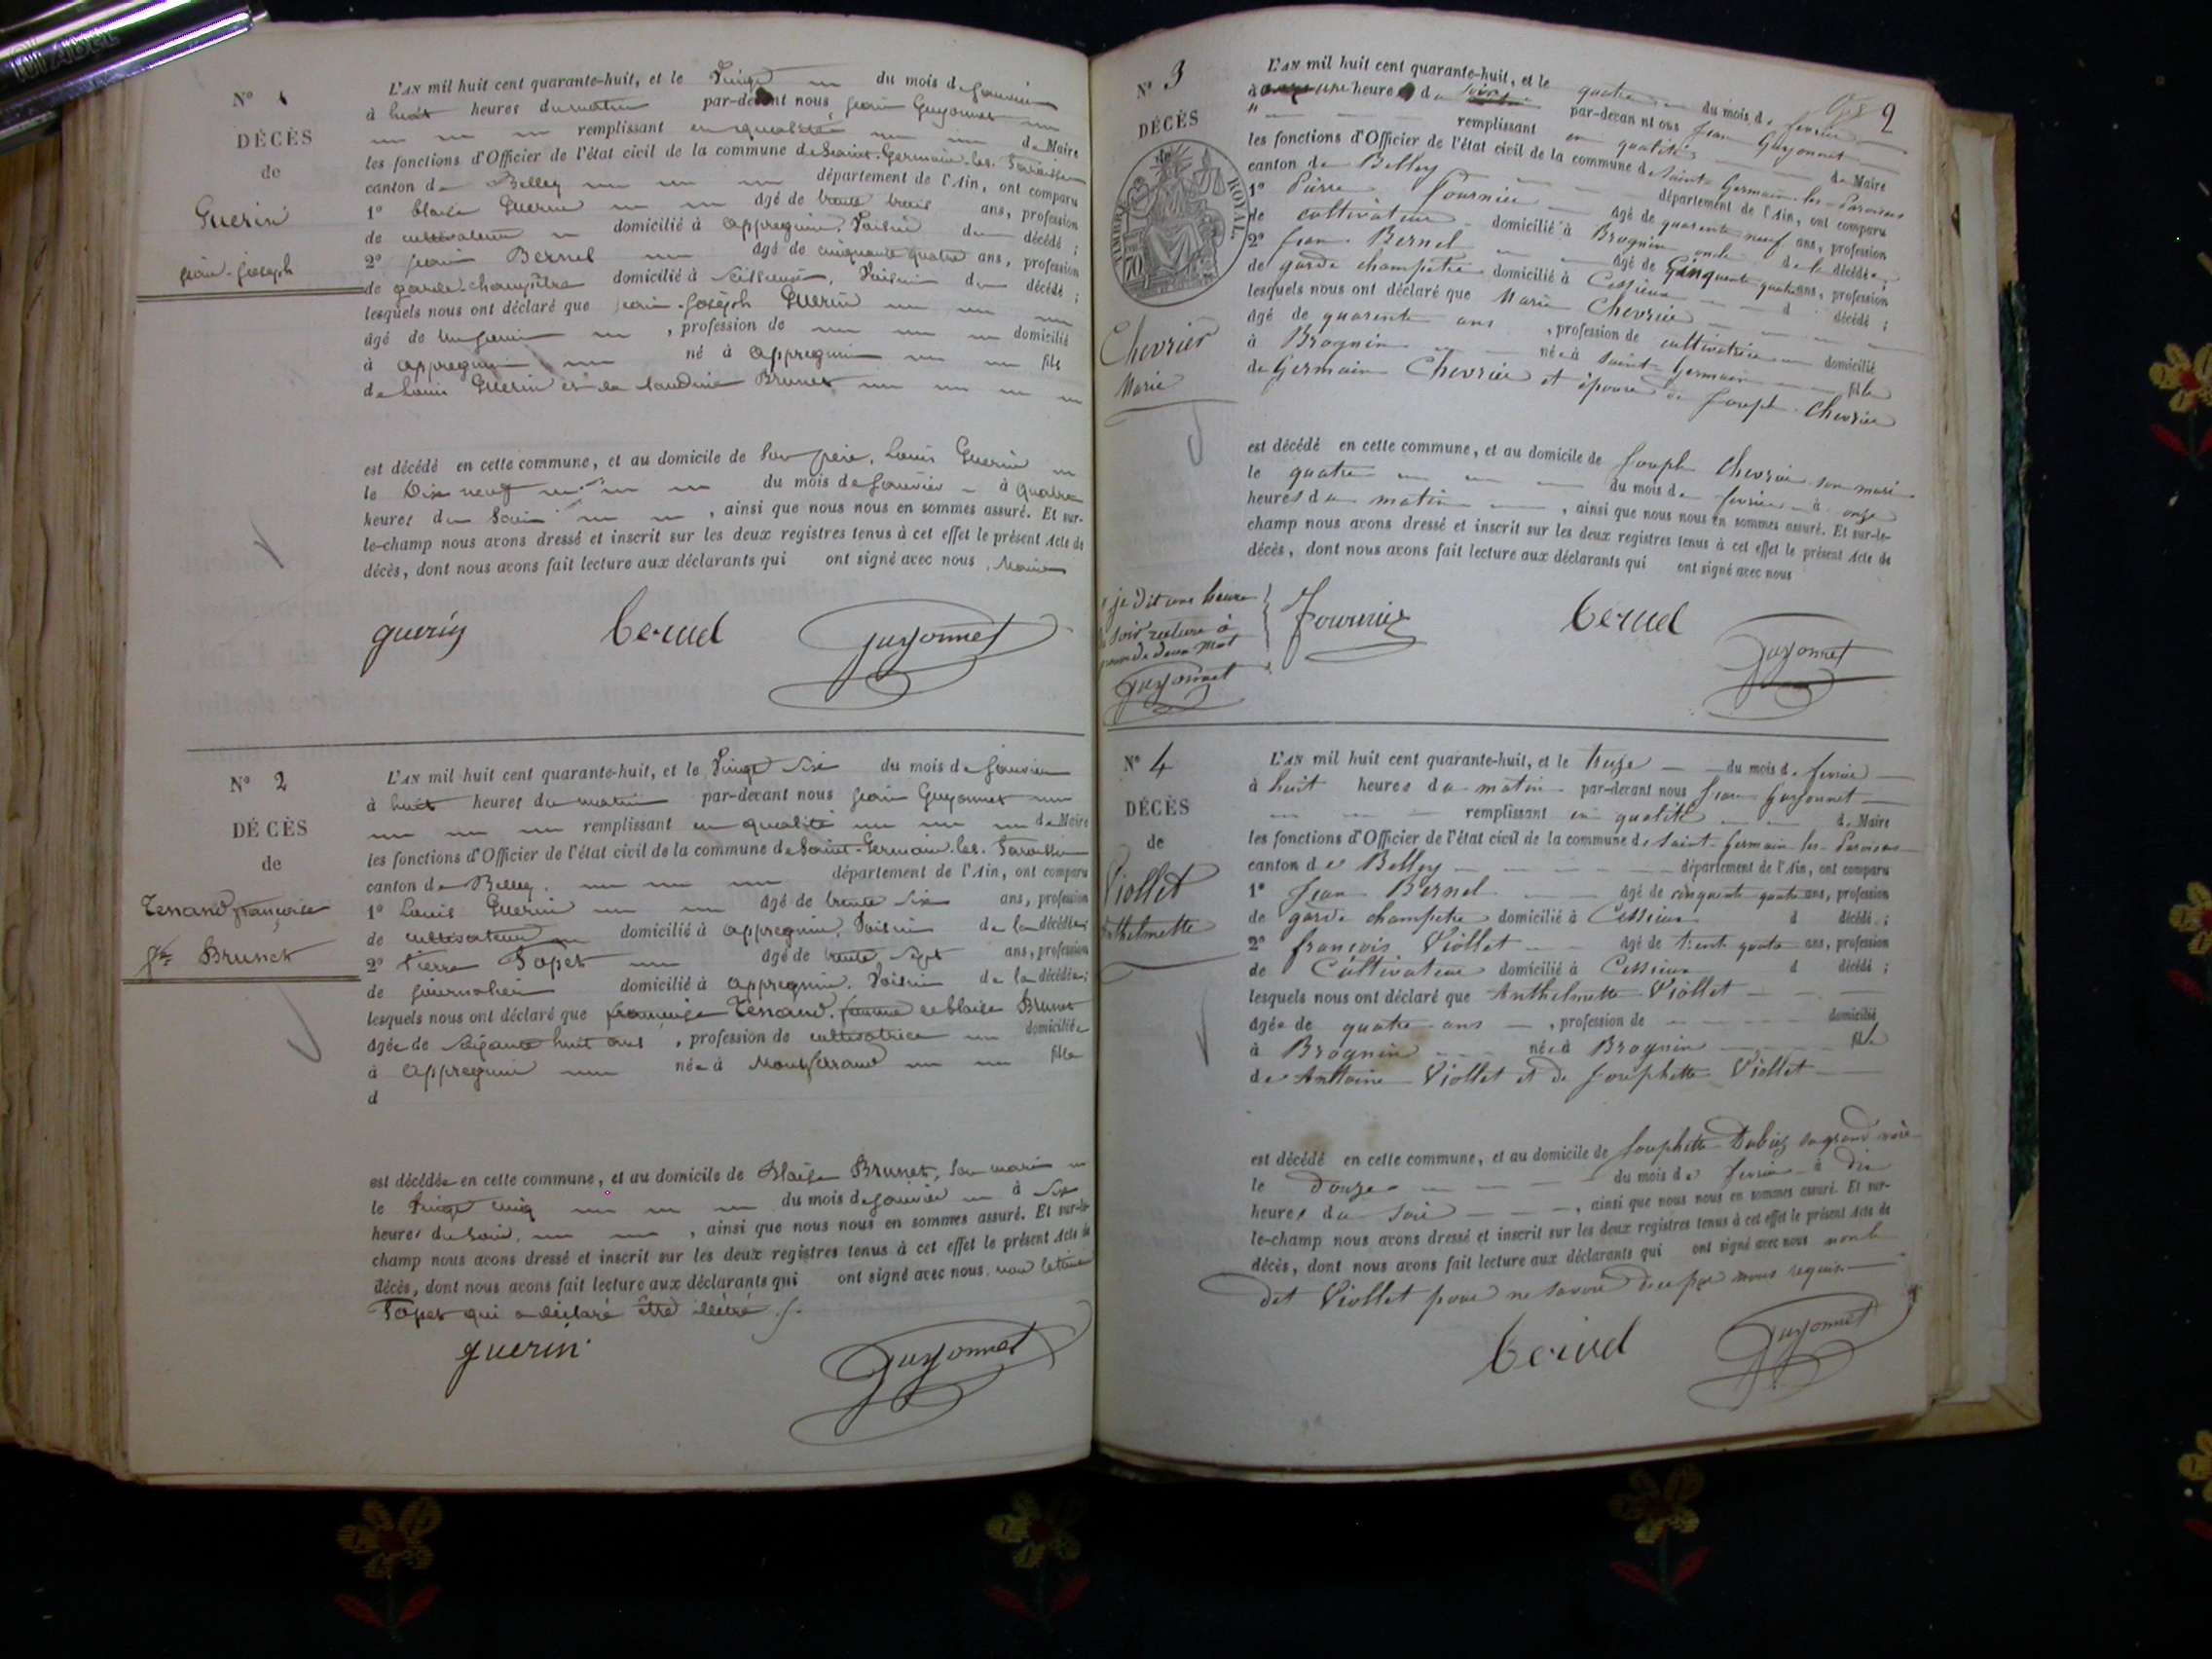 N° 1
DÉCÈS
de
Guerin
jean-joseph
L'AN mil huit cent quarante-huit, et le Vingt du mois de janvier
à huit heures du matin par-devant nous jean Guyonnet
remplissant en qualité de Maire
les fonctions d'Officier de l'état civil de la commune de Saint-Germain-les-Paroisses
canton de Belley département de l'Ain, ont comparu
1° blaise Guerin âgé de trente trois ans, profession
de cultivateur domicilié à appregnin, Voisin du décédé ;
2° jean Bernel âgé de cinquante quatre ans, profession
de garde-champêtre domicilié à Voisin du décédé ;
lesquels nous ont déclaré que jean-joséph Guerin
âgé de un jour , profession de domicilié
à appregnin né à appregnin fils
de Louis Guerin et de Claudine Brunet
est décédé en cette commune, et au domicile de son père, Louis Guerin
le Dix neuf du mois de janvier à quatre
heures du Soir , ainsi que nous nous en sommes assuré. Et sur-
le-champ nous avons dressé et inscrit sur les deux registres tenus à cet effet le présent Acte de
décès, dont nous avons fait lecture aux déclarants qui ont signé avec nous, Maire
guerin bernel guyonnet
N° 2
DÉCÈS
de
Tenand françoise
fme Brunet
L'AN mil huit cent quarante-huit, et le Vingt Six du mois de janvier
à huit heures du matin par-devant nous jean Guyonnet
remplissant en qualité de Maire
les fonctions d'Officier de l'état civil de la commune de Saint-Germain-les-Paroisses
canton de Belley département de l'Ain, ont comparu
1° Louis Guerin âgé de trente Six ans, profession
de cultivateur domicilié à appregnin, Voisin de la décédée ;
2° Pierre Popet âgé de trente Sept ans, profession
de journalier domicilié à appregnin, Voisin de la décédée ;
lesquels nous ont déclaré que françoise Tenand, femme de blaise Brunet
âgée de Soixante huit ans , profession de cultivatrice domiciliée
à appregnin née à Montferrand fille
d
est décédée en cette commune, et au domicile de Blaise Brunet, son mari
le Vingt cinq du mois de janvier à Six
heures du Soir, , ainsi que nous nous en sommes assuré. Et sur-le-
champ nous avons dressé et inscrit sur les deux registres tenus à cet effet le présent Acte de
décès, dont nous avons fait lecture aux déclarants qui ont signé avec nous, non le témoin
Popet qui a déclaré être illétré
guerin guyonnet
2
N° 3
DÉCÈS
de
TIMBRE ROYAL
70
Chevrier
Marie
L'AN mil huit cent quarante-huit, et le quatre du mois de fevrier
à une heure du soir par-devant nous Jean Guyonnet
remplissant en qualité de Maire
les fonctions d'Officier de l'état civil de la commune de Saint-Germain-les-Paroisses
canton de Belley département de l'Ain, ont comparu
1° Pierre Fournier âgé de quarente neuf ans, profession
de cultivateur domicilié à Brognin oncle de la décédée ;
2° Jean Bernel âgé de Cinquante quatre ans, profession
de garde champetre domicilié à Cessieux d décédé ;
lesquels nous ont déclaré que Marie Chevrier
âgé de quarente ans , profession de cultivatrice domicilié
à Brognin née à Saint-Germain fille
de Germain Chevrier et épouse de Joseph Chevrier
est décédé en cette commune, et au domicile de Joseph Chevrier son mari
le quatre du mois de fevrier à onze
heures du matin , ainsi que nous nous en sommes assuré. Et sur-le-
champ nous avons dressé et inscrit sur les deux registres tenus à cet effet le présent Acte de
décès, dont nous avons fait lecture aux déclarants qui ont signé avec nous
je dit une heure
soir
de deux mot
guyonnet
fournier bernel guyonnet
N° 4
DÉCÈS
de
Viollet
Anthelmette
L'AN mil huit cent quarante-huit, et le treize du mois de fevrier
à huit heures du matin par-devant nous Jean Guyonnet
remplissant en qualité de Maire
les fonctions d'Officier de l'état civil de la commune de Saint-Germain-les-Paroisses
canton de Belley département de l'Ain, ont comparu
1° Jean Bernel âgé de cinquente quatre ans, profession
de garde champetre domicilié à Cessieux d décédé ;
2° françois Viollet âgé de trente quatre ans, profession
de Cultivateur domicilié à Cessieux d décédé ;
lesquels nous ont déclaré que Anthelmette Viollet
âgée de quatre ans , profession de domicilié
à Brognin née à Brognin fille
de Anttoine Viollet et de Josephette Viollet
est décédé en cette commune, et au domicile de Josephette sa grand mère
le douze du mois de fevrier à dix
heures du soir , ainsi que nous nous en sommes assuré. Et sur-
le-champ nous avons dressé et inscrit sur les deux registres tenus à cet effet le présent Acte de
décès, dont nous avons fait lecture aux déclarants qui ont signé avec nous non le
dit Viollet pour ne savoir de ce par nous requis
bernel guyonnet